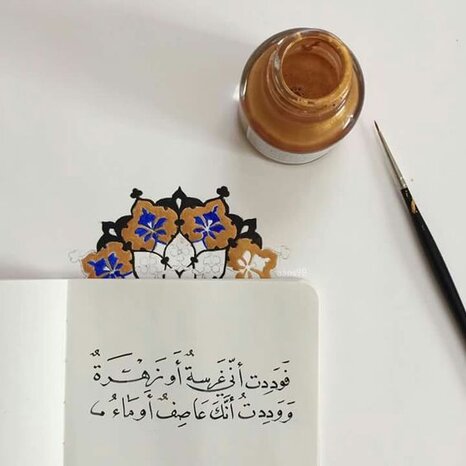 فَوَدِدت أنّي غَرسةٌ أَو زَهْرَةٌ
وَوَدِدتُ أَنَّكَ عَاصِفٌ أَو مَاءُ